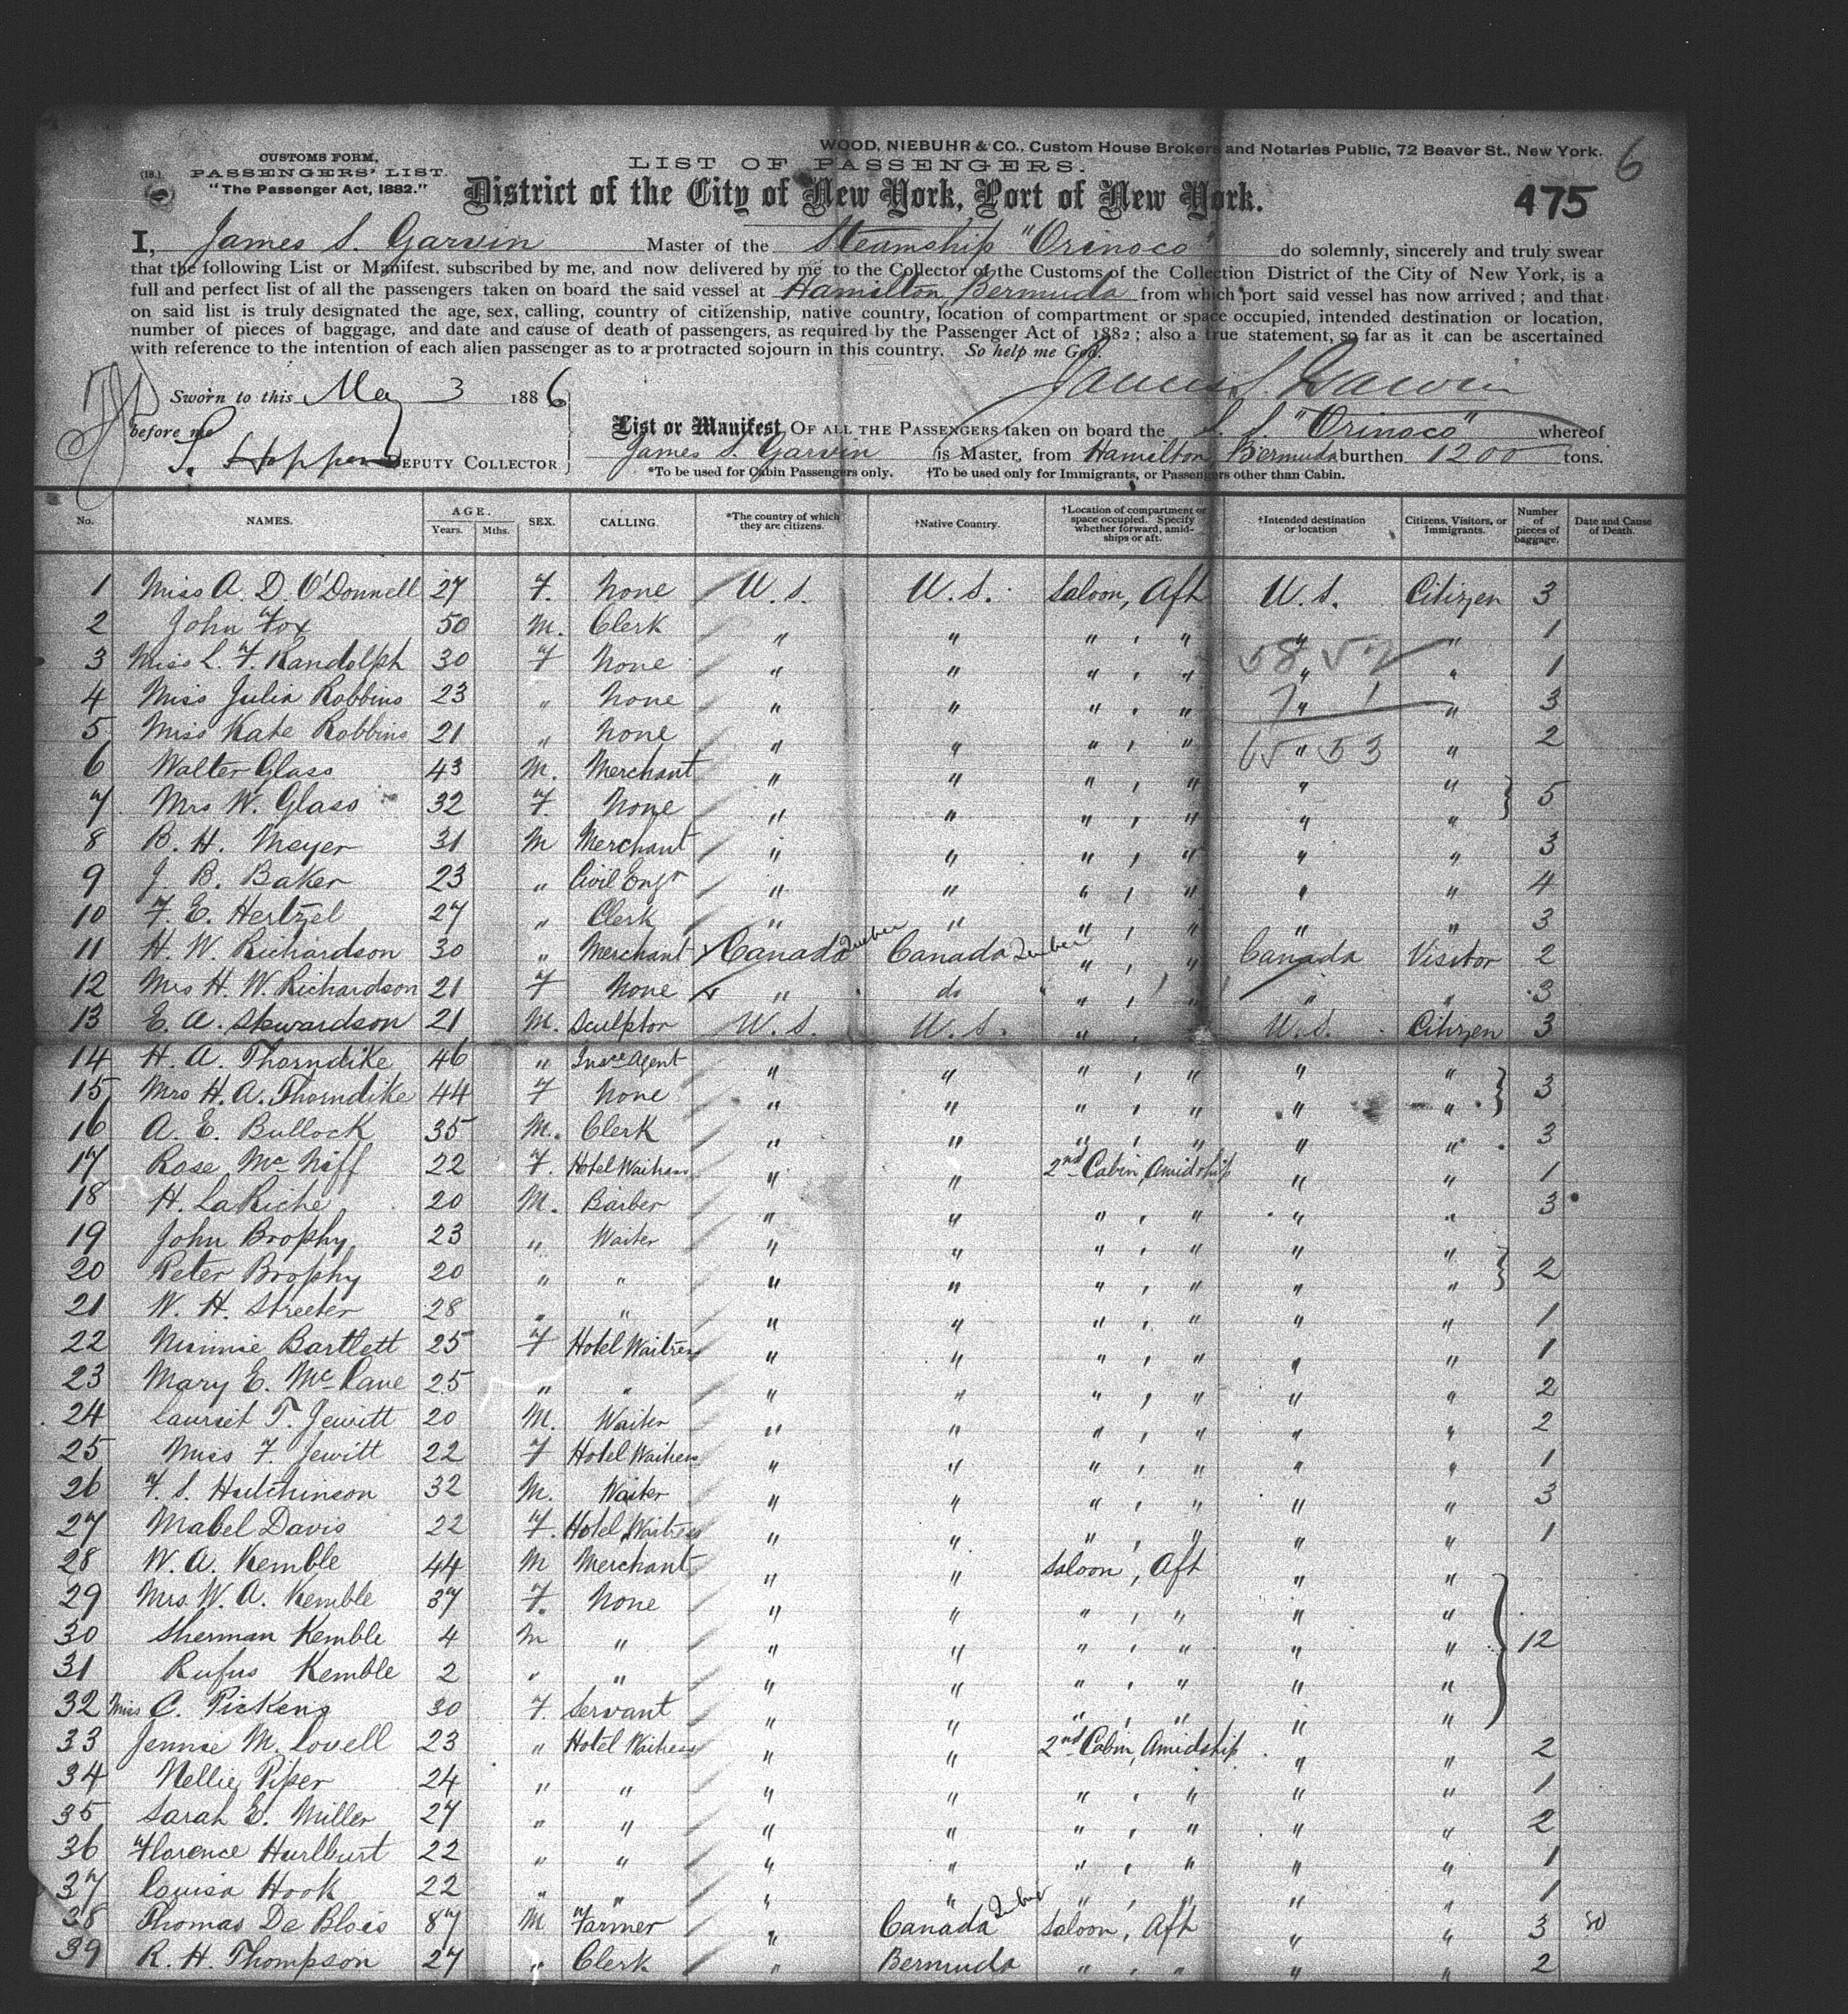 WOOD, NIEBUHR & CO., Custom House Brokers and Notaries Public, 72 Beaver St., New York. 6
CUSTOMS FORM,
(18.) PASSENGERS' LIST.
"The Passenger Act, 1882."
LIST OF PASSENGERS.
District of the City of New York, Port of New York. 475
I, James S. Garvin Master of the Steamship "Orinoco" do solemnly, sincerely and truly swear
that the following List or Manifest, subscribed by me, and now delivered by me to the Collector of the Customs of the Collection District of the City of New York, is a
full and perfect list of all the passengers taken on board the said vessel at Hamilton, Bermuda from which port said vessel has now arrived; and that
on said list is truly designated the age, sex, calling, country of citizenship, native country, location of compartment or space occupied, intended destination or location,
number of pieces of baggage, and date and cause of death of passengers, as required by the Passenger Act of 1882; also a true statement, so far as it can be ascertained
with reference to the intention of each alien passenger as to a protracted sojourn in this country. So help me God.
James S. Garvin
Sworn to this May 3 1886
before me
DEPUTY COLLECTOR
List or Manifest OF ALL THE PASSENGERS taken on board the S. S. "Orinoco" whereof
James S. Garvin is Master, from Hamilton, Bermuda burthen 1200 tons.
*To be used for Cabin Passengers only. †To be used only for Immigrants, or Passengers other than Cabin.
No. NAMES. AGE. Years. Mths. SEX. CALLING. *The country of which they are citizens. †Native Country. †Location of compartment or space occupied. Specify whether forward, amidships or aft. †Intended destination or location Citizens, Visitors, or Immigrants. Number of pieces of baggage. Date and Cause of Death.
1 Miss A. D. O'Donnell 27 F. None U.S. U.S. Saloon, Aft U.S. Citizen 3
2 John Fox 50 M. Clerk " " " , " " " 1
3 Miss L. F. Randolph 30 F None " " " , " " " 1
58 52
4 Miss Julia Robbins 23 " None " " " , " " " 3
7 1
5 Miss Kate Robbins 21 " None " " " , " " " 2
65 53
6 Walter Glass 43 M. Merchant " " " , " " "
7 Mrs W. Glass 32 F. None " " " , " " " } 5
8 B. H. Meyer 31 M Merchant " " " , " " " 3
9 J. B. Baker 23 " Civil Engr " " " , " " " 4
10 F. E. Hertzel 27 " Clerk " " " , " " " 3
11 H. W. Richardson 30 " Merchant Canada Quebec Canada Quebec " , " Canada Visitor 2
12 Mrs H. W. Richardson 21 F None " do " , " " " 3
13 E. A. Stewardson 21 M. Sculptor U.S. U.S. " , " U.S. Citizen 3
14 H. A. Thorndike 46 " Insce Agent " " " , " " "
15 Mrs H. A. Thorndike 44 F None " " " , " " " } 3
16 A. E. Bullock 35 M. Clerk " " " , " " " 3
17 Rose McNiff 22 F. Hotel Waitress " " 2nd Cabin, Amidship " " 1
18 H. LaRiche 20 M. Barber " " " , " " " 3
19 John Brophy 23 " Waiter " " " , " " "
20 Peter Brophy 20 " " " " " , " " " } 2
21 W. H. Streeter 28 " " " " " , " " " 1
22 Minnie Bartlett 25 F Hotel Waitress " " " , " " " 1
23 Mary E. McLane 25 " " " " " , " " " 2
24 T. Jewitt 20 M. Waiter " " " , " " " 2
25 Miss F. Jewitt 22 F Hotel Waitress " " " , " " " 1
26 F. S. Hutchinson 32 M. Waiter " " " , " " " 3
27 Mabel Davis 22 F. Hotel Waitress " " " , " " " 1
28 W. A. Kemble 44 M Merchant " " Saloon, Aft " "
29 Mrs. W. A. Kemble 37 F. None " " " , " " "
30 Sherman Kemble 4 M " " " " , " " " } 12
31 Rufus Kemble 2 " " " " " , " " "
32 Miss C. Pickens 30 F. Servant " " " , " " "
33 Jennie M. Lovell 23 " Hotel Waitress " " 2nd Cabin, Amidship " " 2
34 Nellie Piper 24 " " " " " , " " " 1
35 Sarah E. Miller 27 " " " " " , " " " 2
36 Florence Hurlburt 22 " " " " " , " " " 1
37 Louisa Hook 22 " " " " " , " " " 1
38 Thomas De Blois 87 M Farmer " Canada Quebec Saloon, Aft " " 3 50
39 R. H. Thompson 27 " Clerk " Bermuda " , " " " 2